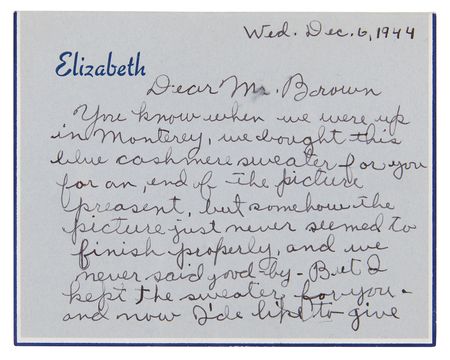 Wed. Dec. 6, 1944
Elizabeth
Dear Mr. Brown
You know when we were up
in Monterey, we bought this
blue cashmere sweater for you
for an end of the picture
preasent, but somehow the
picture just never seemed to
finish properly, and we
never said good-by - But I
kept the sweater for you -
and now I'de like to give